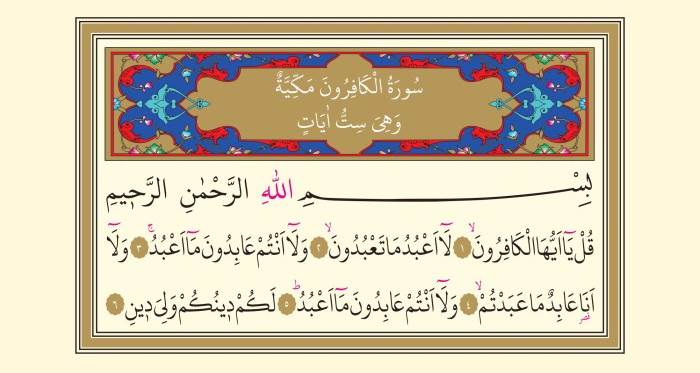 سُورَةُ الْكَافِرُونَ مَكِّيَّةٌ
وَهِىَ سِتُّ اٰيَاتٍ
بِسْمِ اللّٰهِ الرَّحْمٰنِ الرَّحٖيمِ
قُلْ يَٓا اَيُّهَا الْكَافِرُونَۙ ﴿١﴾ لَٓا اَعْبُدُ مَا تَعْبُدُونَۙ ﴿٢﴾ وَلَٓا اَنْتُمْ عَابِدُونَ مَٓا اَعْبُدُۚ ﴿٣﴾ وَلَٓا
اَنَا۬ عَابِدٌ مَا عَبَدْتُمْۙ ﴿٤﴾ وَلَٓا اَنْتُمْ عَابِدُونَ مَٓا اَعْبُدُۜ ﴿٥﴾ لَكُمْ دٖينُكُمْ وَلِىَ دٖينِ ﴿٦﴾